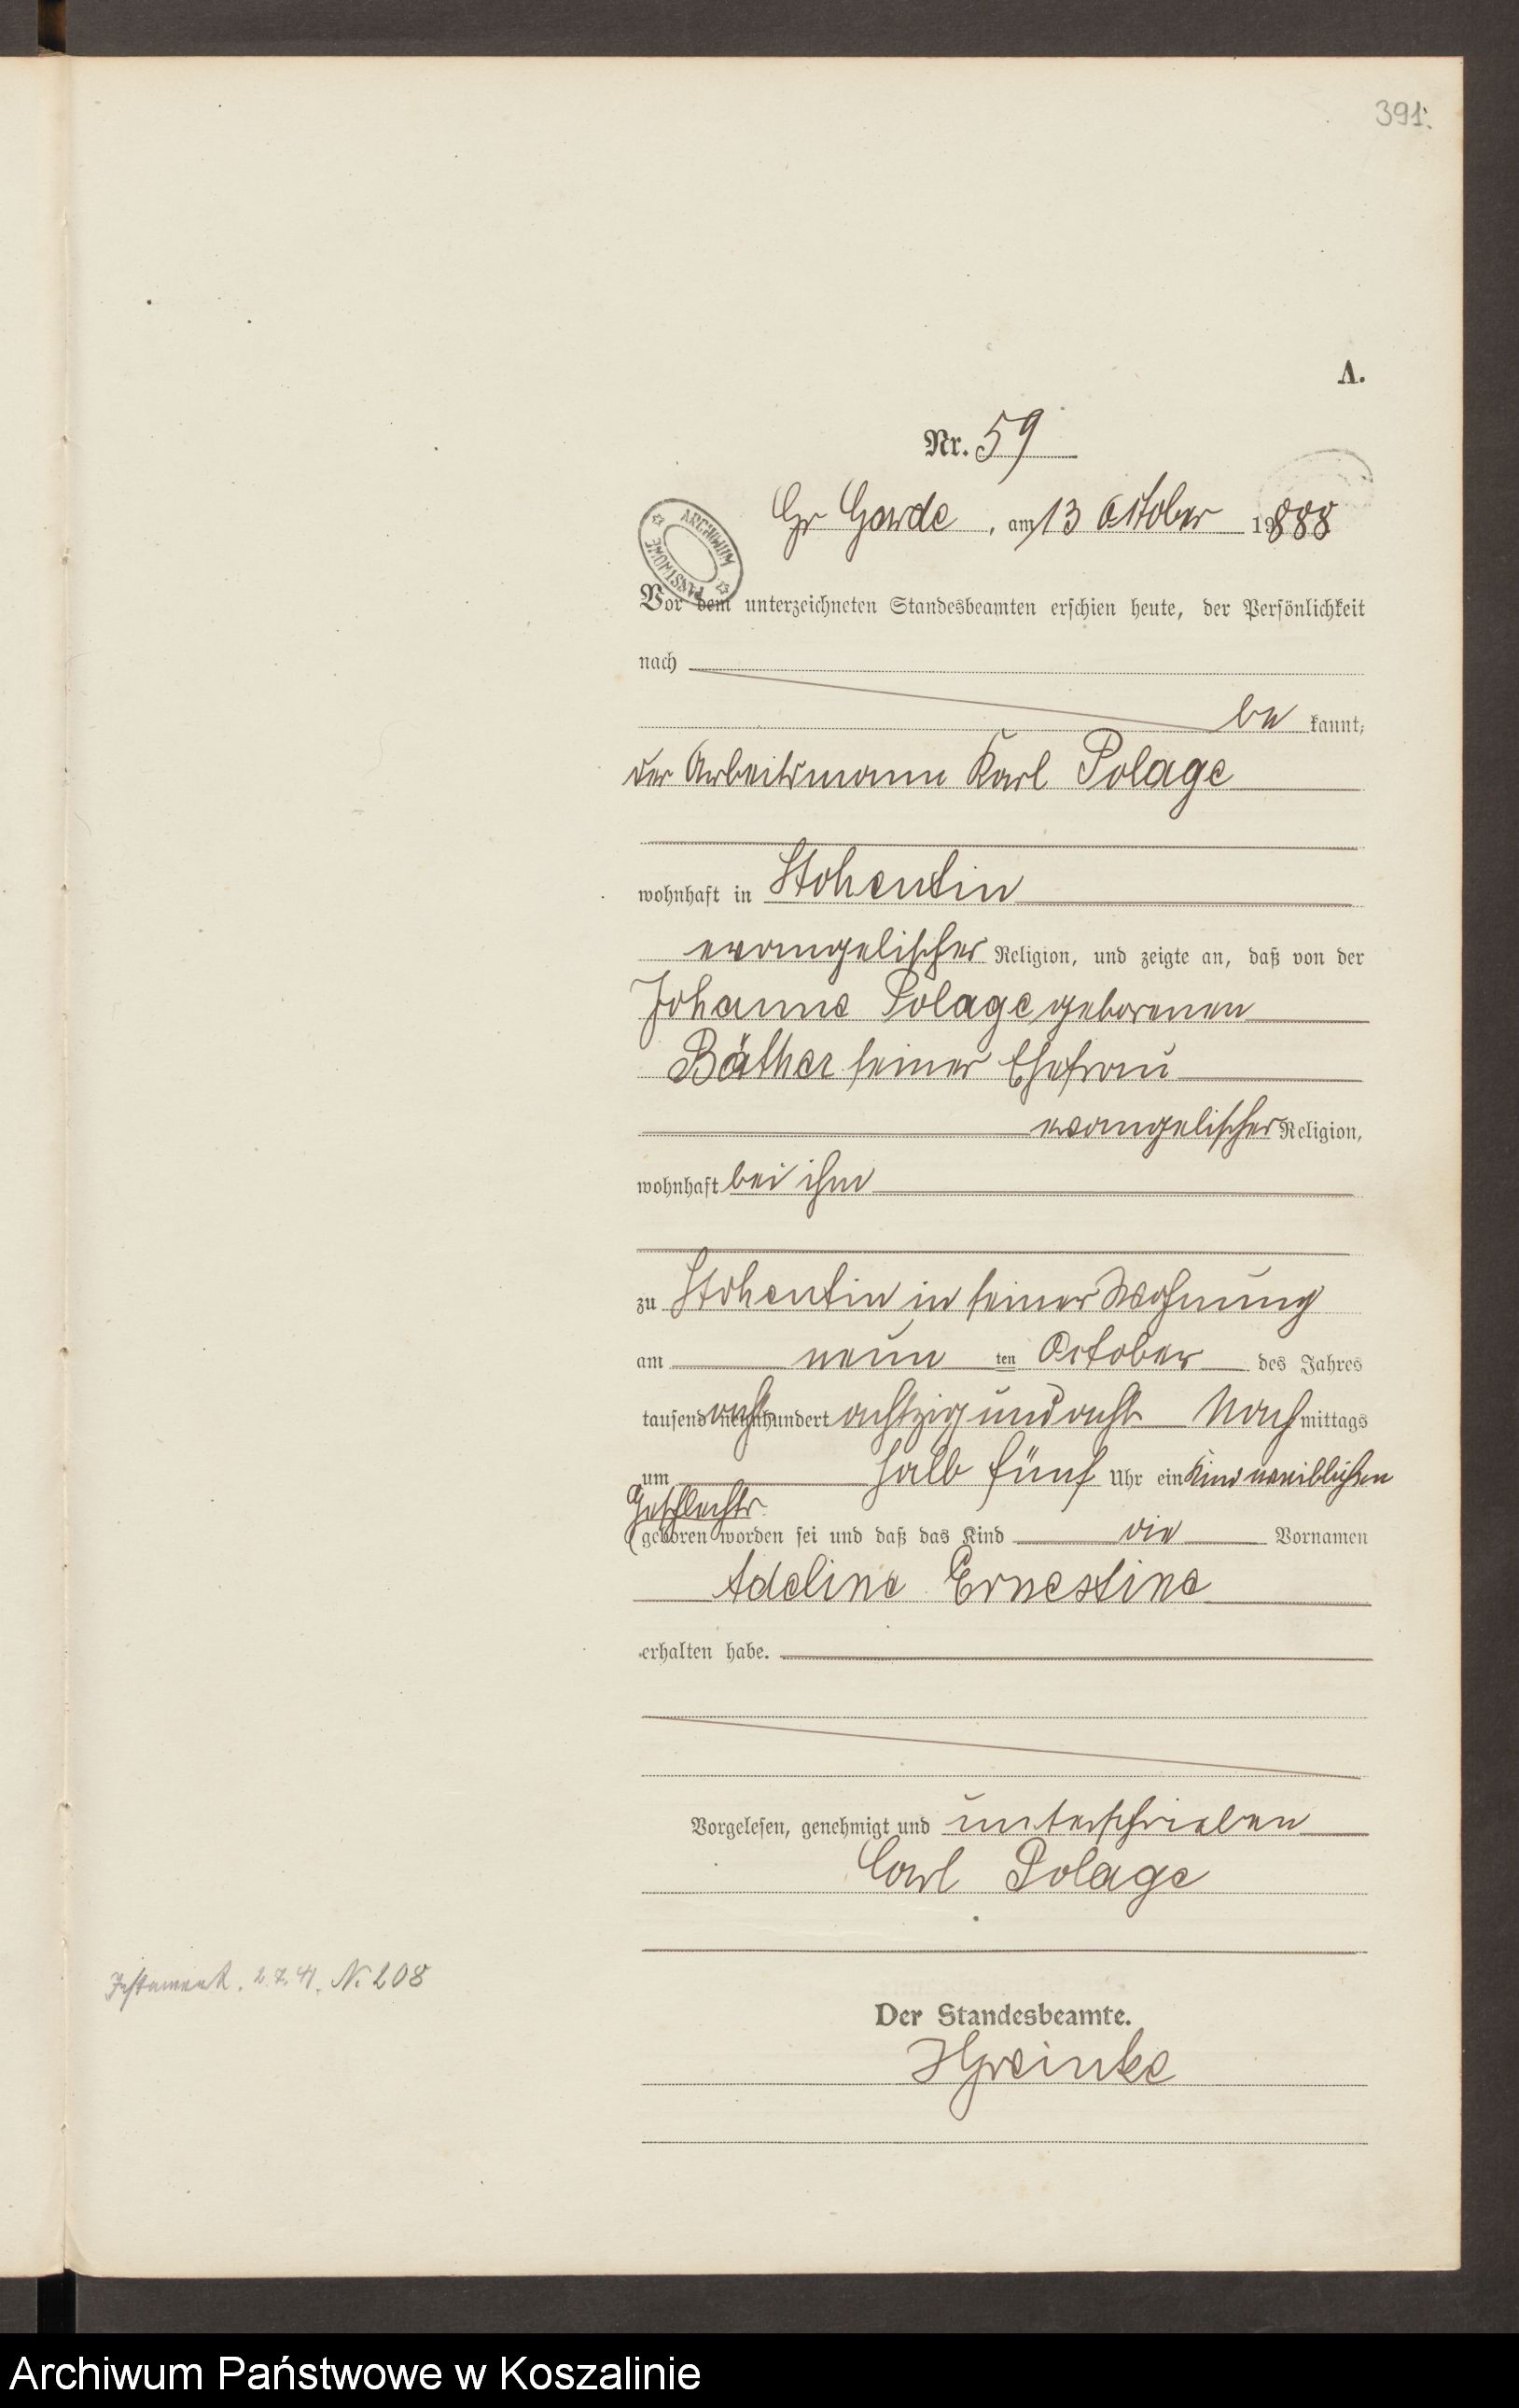 391.
A.
Nr. 59
Gr Garde, am 13 October 19888
ARCHIWUM PAŃSTWOWE
Vor dem unterzeichneten Standesbeamten erschien heute, der Persönlichkeit
nach
be kannt,
der Arbeitsmann Karl Polage
wohnhaft in Stohentin
evangelischer Religion, und zeigte an, daß von der
Johanne Polage geborenen
Bäther seiner Ehefrau
evangelischer Religion,
wohnhaft bei ihm
zu Stohentin in seiner Wohnung
am neun ten October des Jahres
tausend neunhundert acht achtzig und acht Nach mittags
um halb fünf Uhr ein Kind weiblichen
Geschlechts
geboren worden sei und daß das Kind die Vornamen
Adeline Ernestine
erhalten habe.
Vorgelesen, genehmigt und unterschrieben
Carl Polage
Testament. 2.7.41. N. 208
Der Standesbeamte.
Archiwum Państwowe w Koszalinie